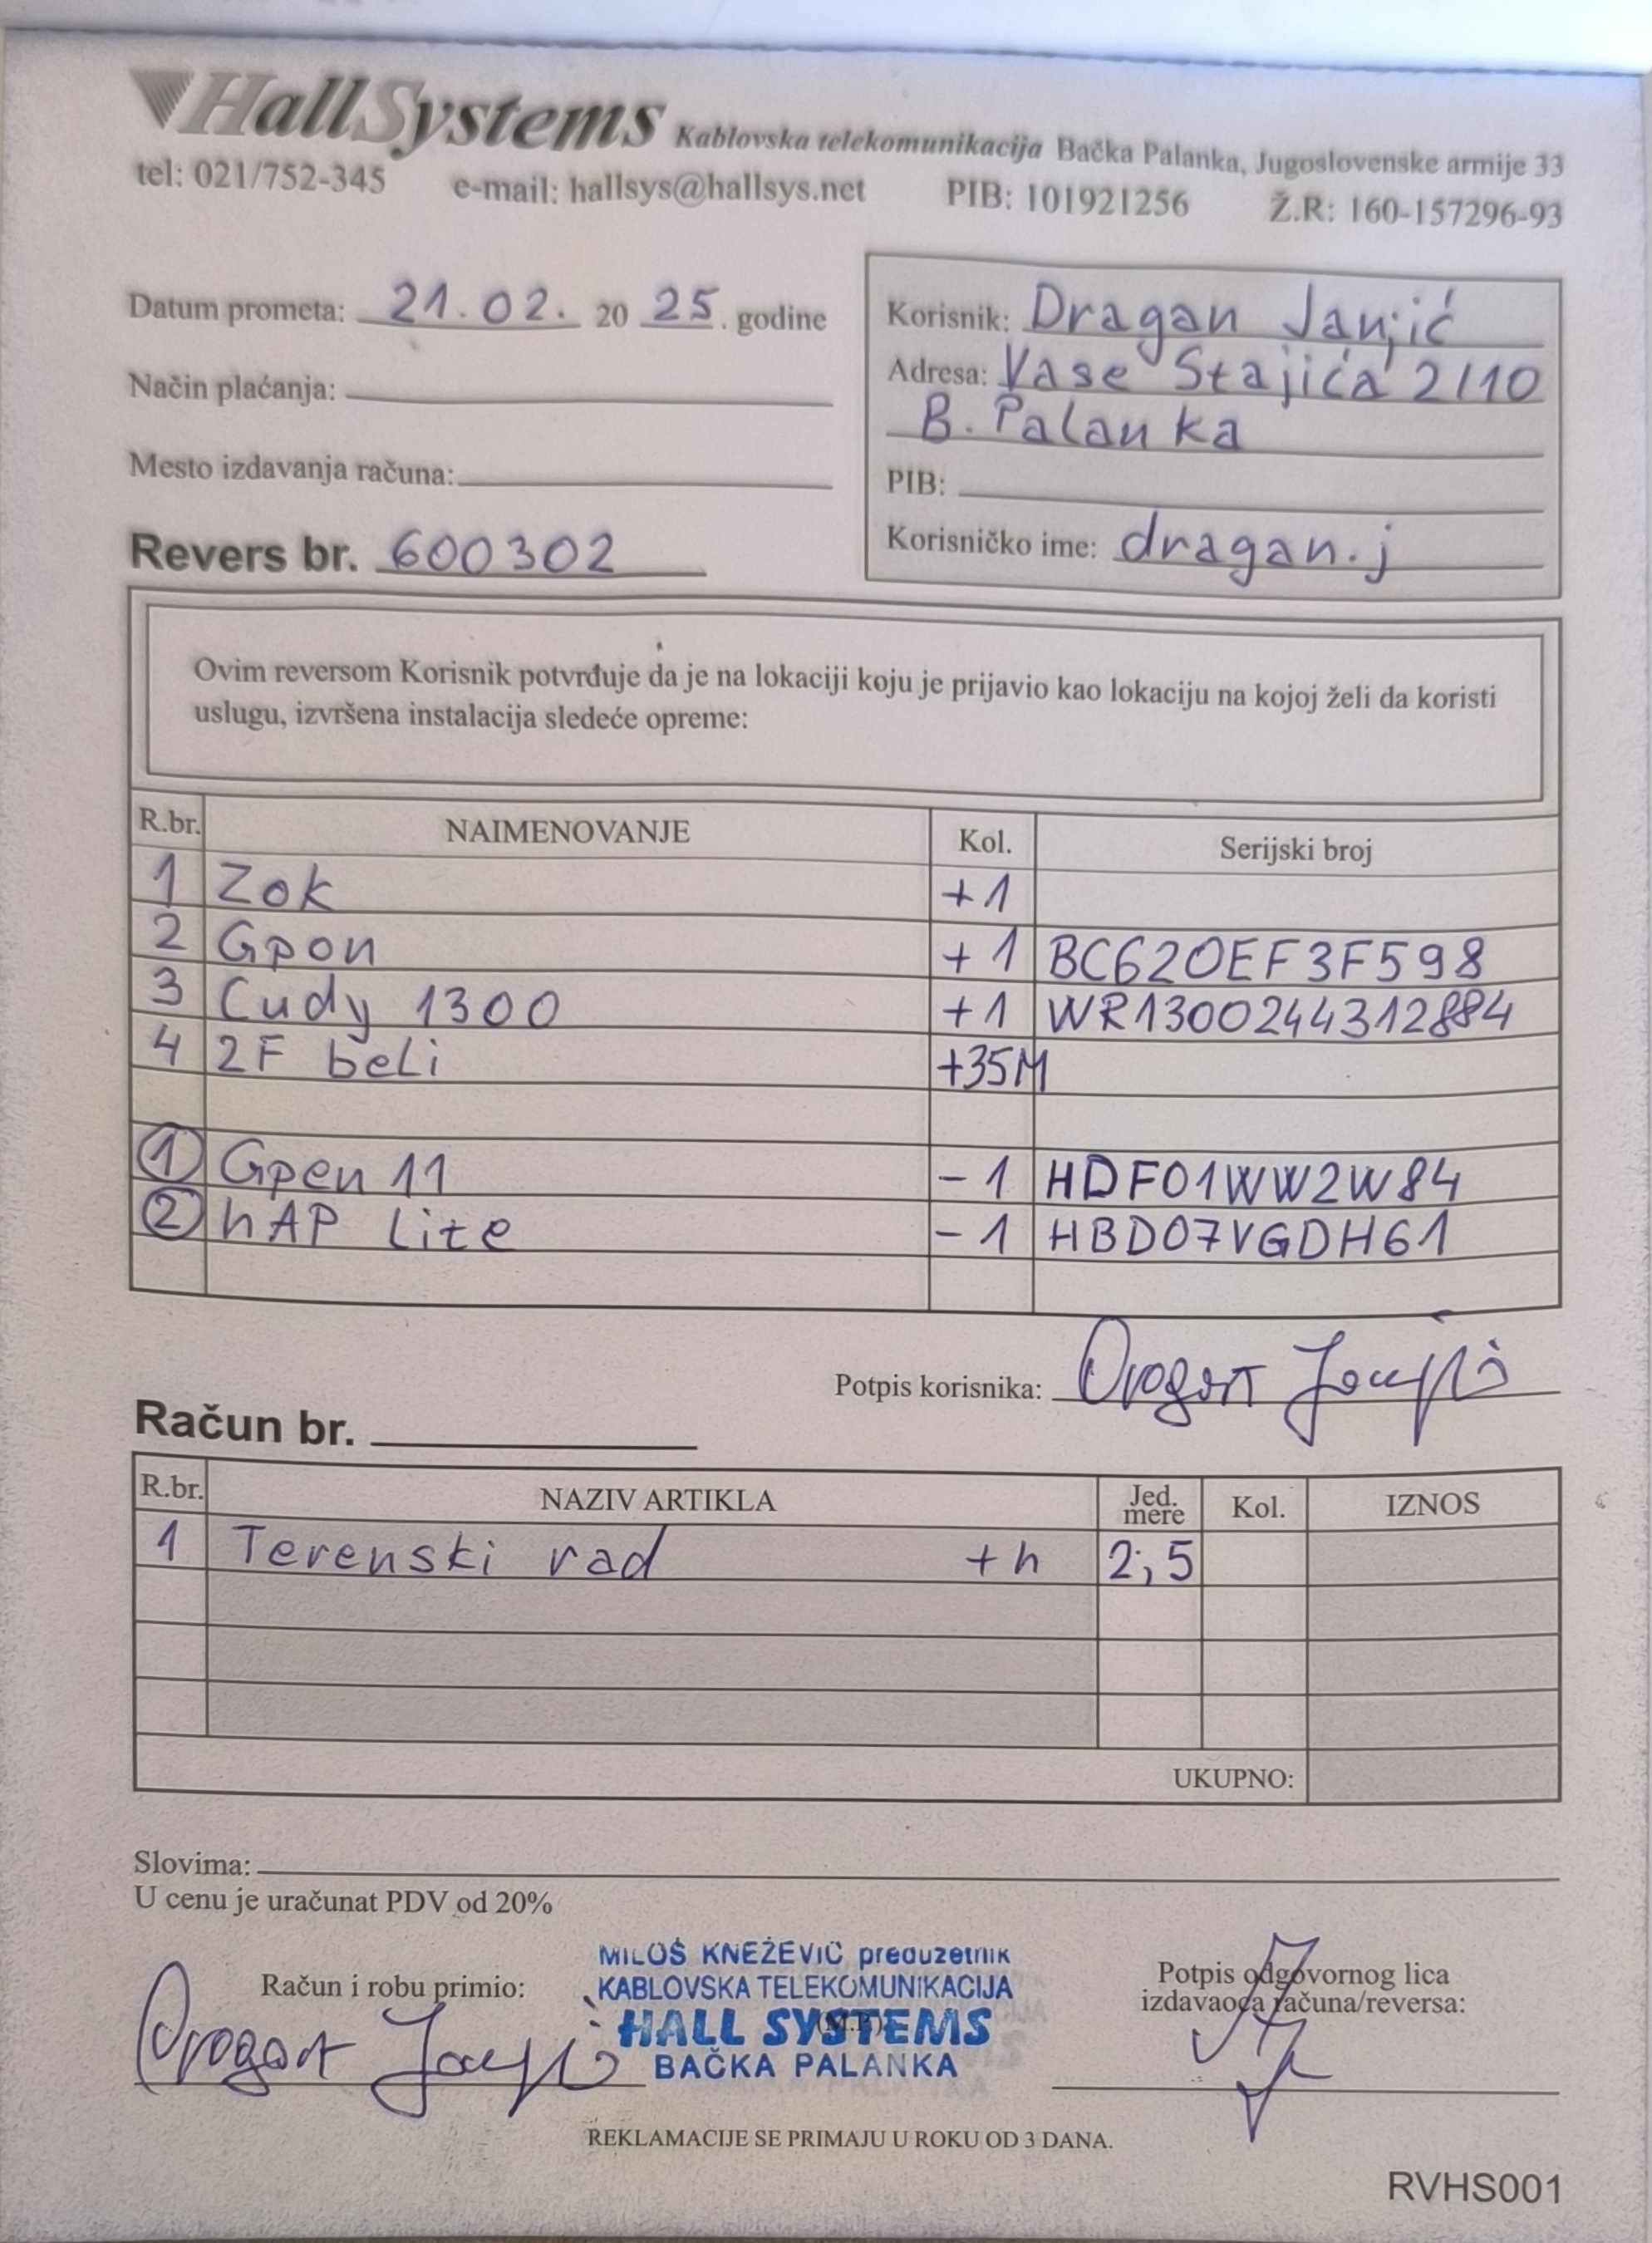 HallSystems Kablovska telekomunikacija Bačka Palanka, Jugoslovenske armije 33
tel: 021/752-345 e-mail: hallsys@hallsys.net PIB: 101921256 Ž.R: 160-157296-93
Datum prometa: 21.02. 20 25. godine
Način plaćanja:
Mesto izdavanja računa:
Revers br. 600302
Korisnik: Dragan Janjić
Adresa: Vase Stajića 2/10
B. Palanka
PIB:
Korisničko ime: dragan.j
Ovim reversom Korisnik potvrđuje da je na lokaciji koju je prijavio kao lokaciju na kojoj želi da koristi
uslugu, izvršena instalacija sledeće opreme:
R.br. NAIMENOVANJE Kol. Serijski broj
1 Zok +1
2 Gpon +1 BC620EF3F598
3 Cudy 1300 +1 WR1300244312884
4 2F beli +35M
1 Gpen 11 -1 HDF01WW2W84
2 hAP Lite -1 HBD07VGDH61
Potpis korisnika:
Račun br.
R.br. NAZIV ARTIKLA Jed. mere Kol. IZNOS
1 Terenski rad +h 2,5
UKUPNO:
Slovima:
U cenu je uračunat PDV od 20%
Račun i robu primio:
MILOŠ KNEŽEVIĆ preduzetnik
KABLOVSKA TELEKOMUNIKACIJA
HALL SYSTEMS
(M.P.)
BAČKA PALANKA
Potpis odgovornog lica
izdavaoca računa/reversa:
REKLAMACIJE SE PRIMAJU U ROKU OD 3 DANA.
RVHS001